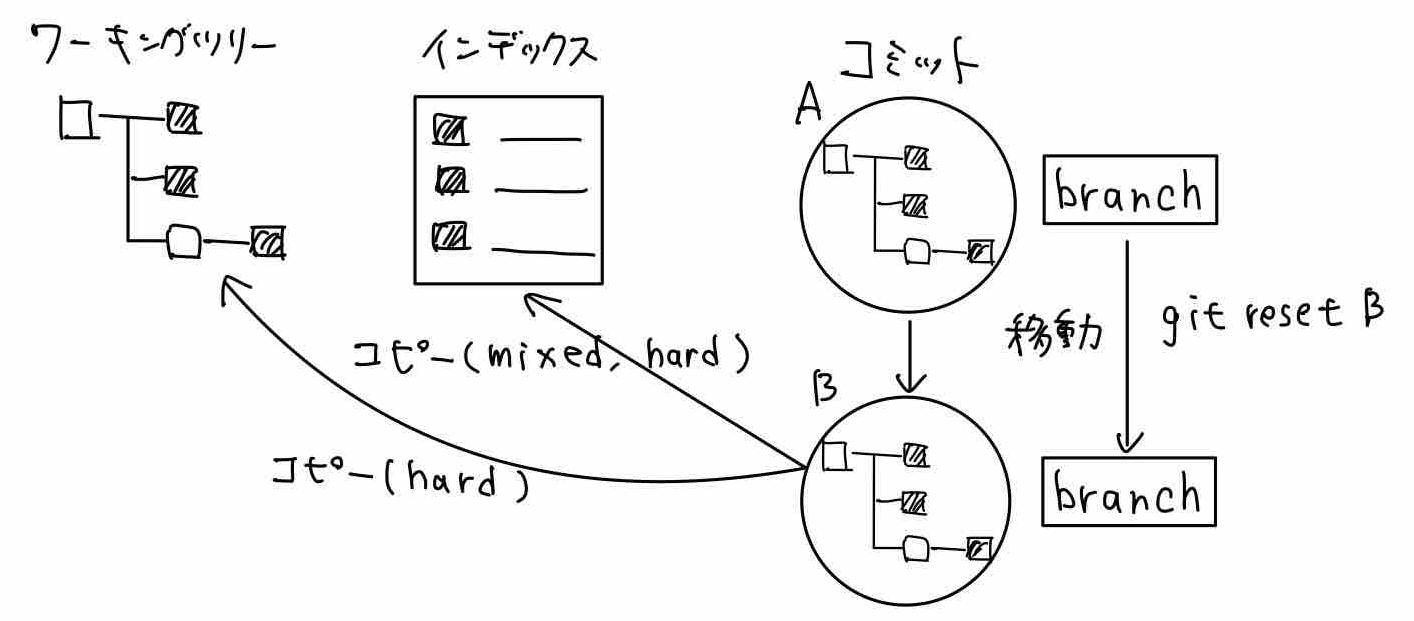 ワーキングツリー
インデックス
コミット
A
branch
移動
git reset B
コピー(mixed, hard)
B
コピー(hard)
branch